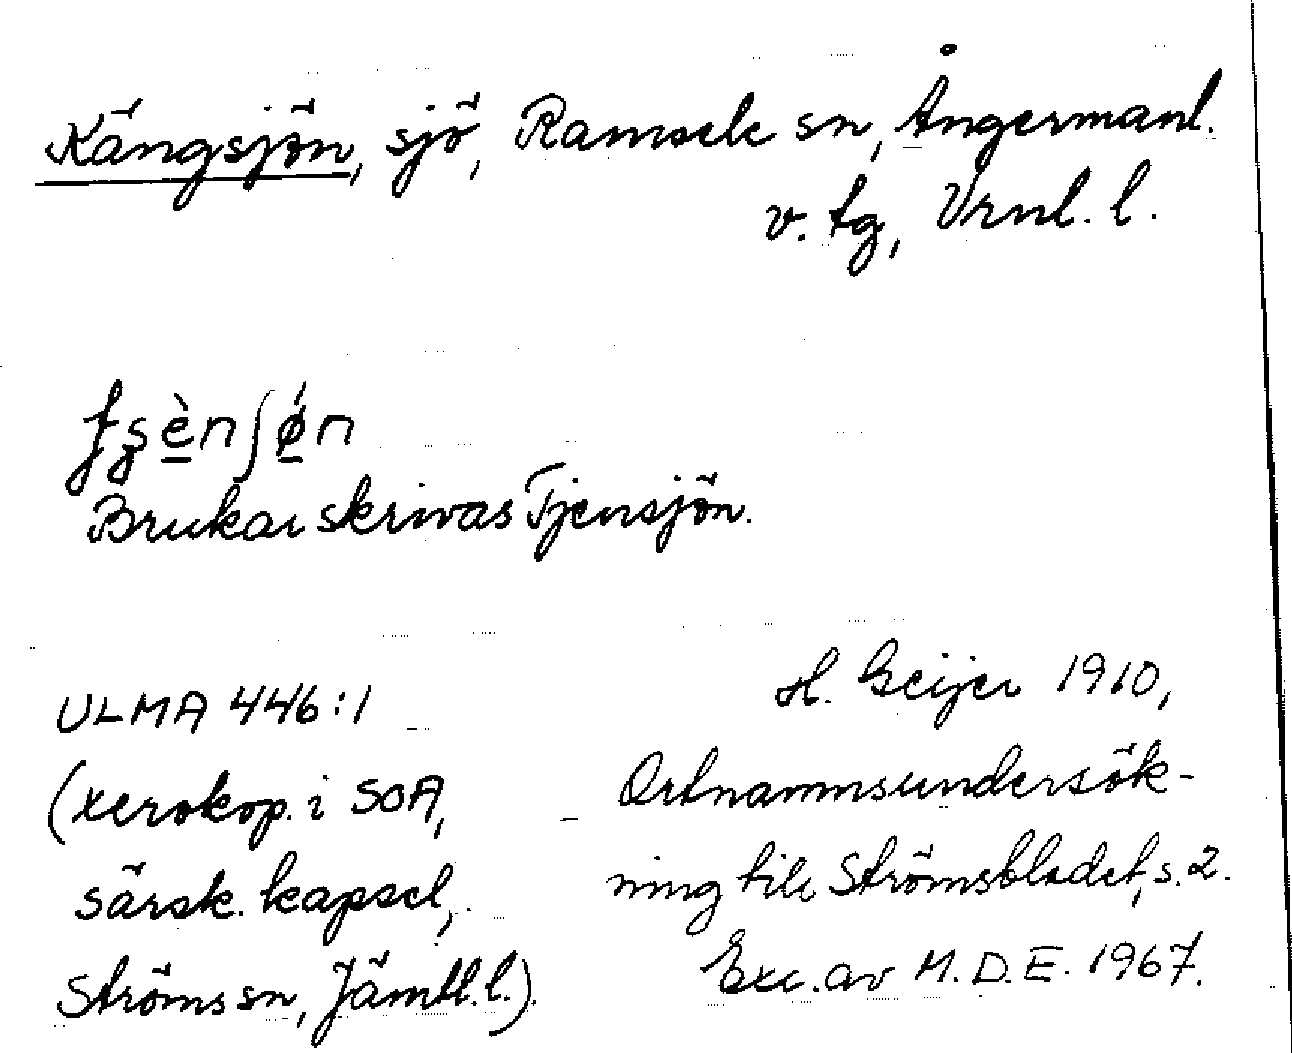 Kängsjön, sjö, Ramsele sn, Ångermanl.
v. tg, Vrnl. l.
Brukar skrivas Tjensjön.
ULMA 446:1
(xerokop. i SOA,
särsk. kapsel,
Ströms sn, Jämtl. l.).
H. Geijer 1910,
Ortnamnsundersök-
ning till Strömsbladet, s. 2.
Exc. av M.D.E. 1967.